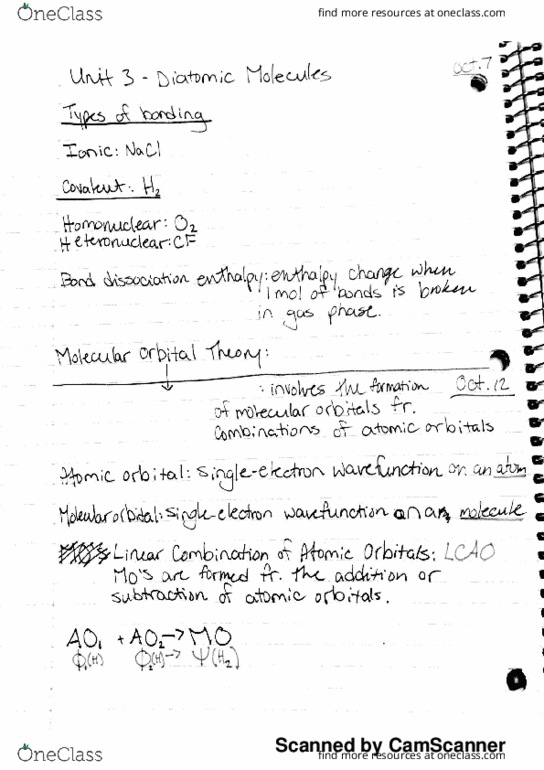 OneClass
find more resources at oneclass.com
Oct. 7
Unit 3 - Diatomic Molecules
Types of bonding
Ionic: NaCl
Covalent: H₂
Homonuclear: O₂
Heteronuclear: CF
Bond dissociation enthalpy: enthalpy change when
1 mol of bonds is broken
in gas phase.
Molecular Orbital Theory:
Oct. 12
: involves the formation
of molecular orbitals fr.
combinations of atomic orbitals
Atomic orbital: single-electron wavefunction on an atom
Molecular orbital: single-electron wavefunction on a molecule
Linear Combination of Atomic Orbitals: LCAO
MO's are formed fr. the addition or
subtraction of atomic orbitals.
AO₁ + AO₂ → MO
ϕ₁(H) ϕ₂(H) → Ψ(H₂)
Scanned by CamScanner
OneClass
find more resources at oneclass.com